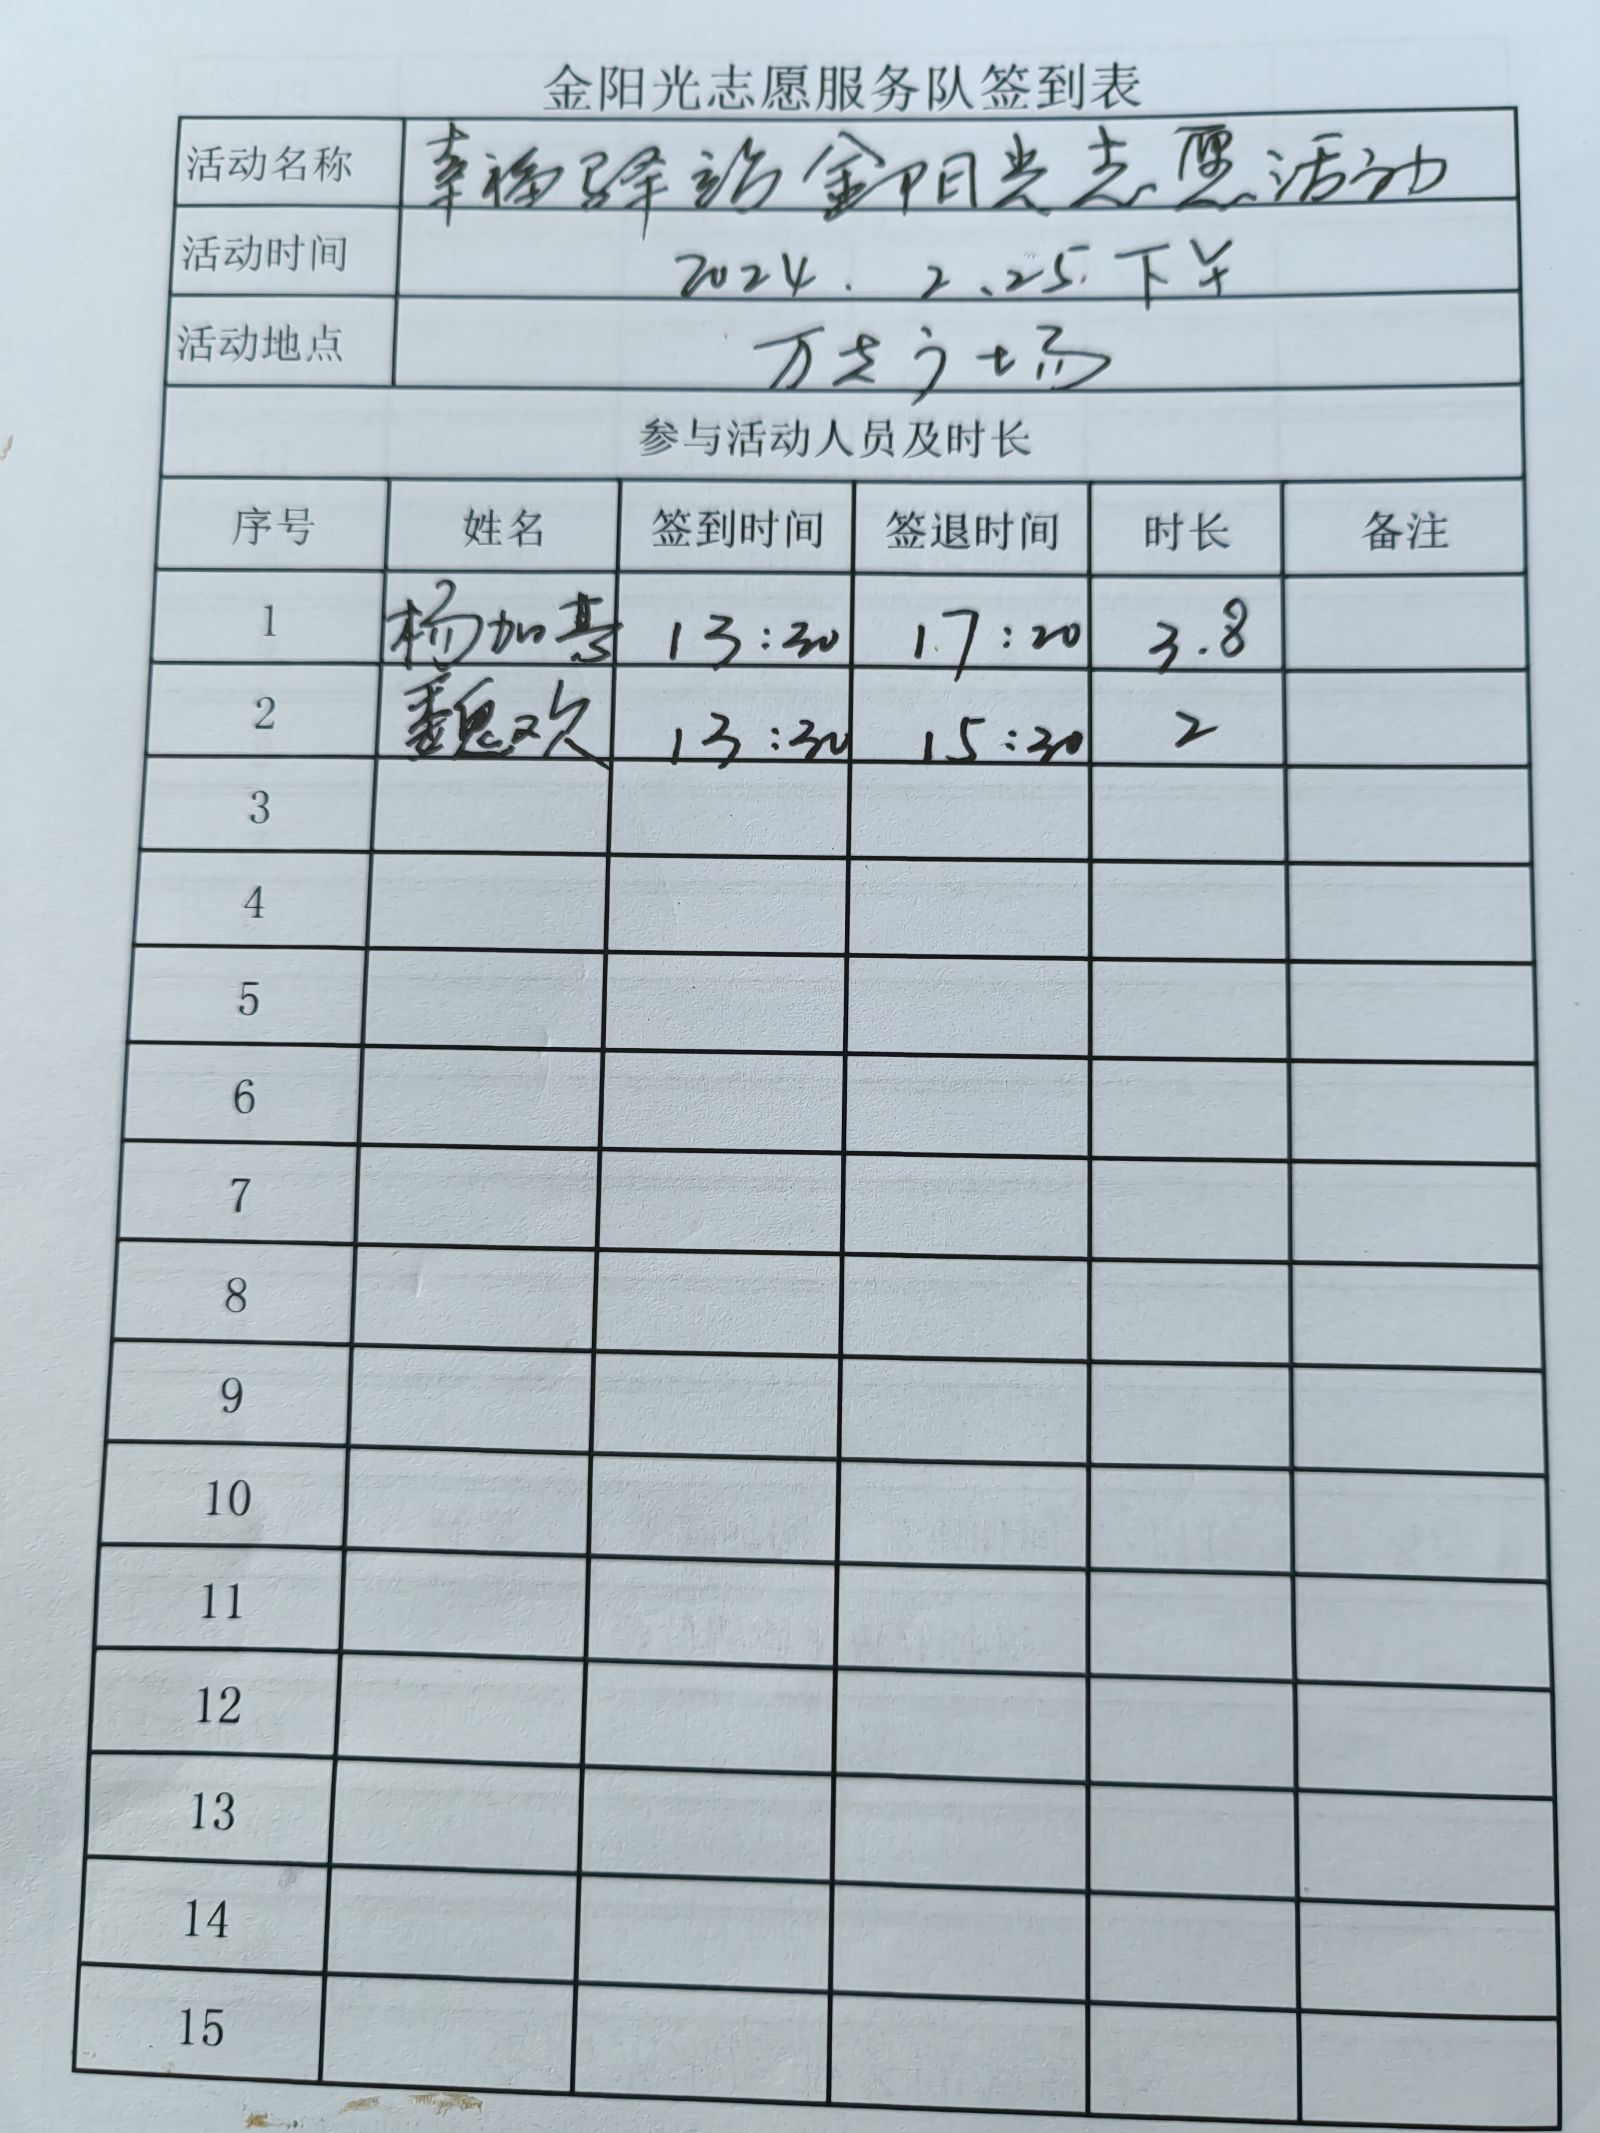 金阳光志愿服务队签到表
活动名称 幸福驿站金阳光志愿活动
活动时间 2024.2.25.下午
活动地点 万达广场
参与活动人员及时长
序号 姓名 签到时间 签退时间 时长 备注
1 杨加 13:30 17:20 3.8
2 魏欢 13:30 15:30 2
3
4
5
6
7
8
9
10
11
12
13
14
15